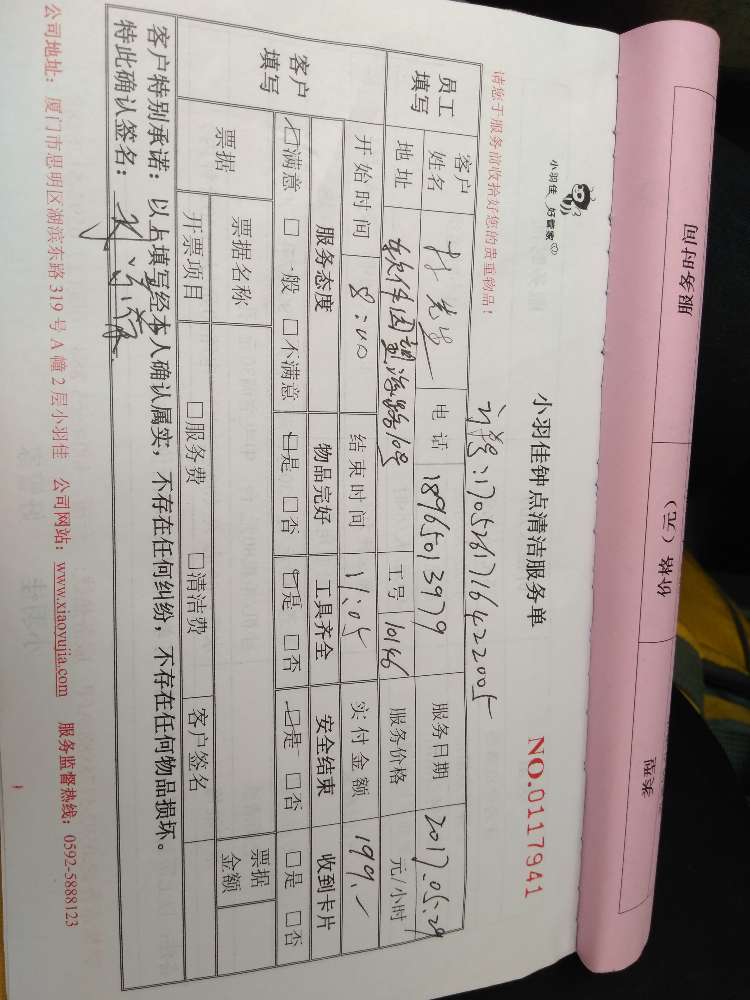 小羽佳 好管家
小羽佳钟点清洁服务单
NO.0117941
订单:1705261716422005
请您于服务前收拾好您的贵重物品!
员工填写 客户姓名 先生 电话 18965013979 服务日期 2017.05.29
地址 软件园 路10号 工号 10146 服务价格 元/小时
客户填写 开始时间 8:00 结束时间 11:05 实付金额 199.
服务态度 物品完好 工具齐全 安全结束 收到卡片
☑满意 □一般 □不满意 ☑是 □否 ☑是 □否 ☑是 □否 □是 □否
票据 票据名称 票据金额
开票项目 □服务费 □清洁费 客户签名
客户特别承诺:以上填写经本人确认属实,不存在任何纠纷,不存在任何物品损坏。
特此确认签名:
公司地址:厦门市思明区湖滨东路 319 号 A 幢 2 层小羽佳 公司网站:www.xiaoyujia.com 服务监督热线:0592-5888123
服务时间
价格(元)